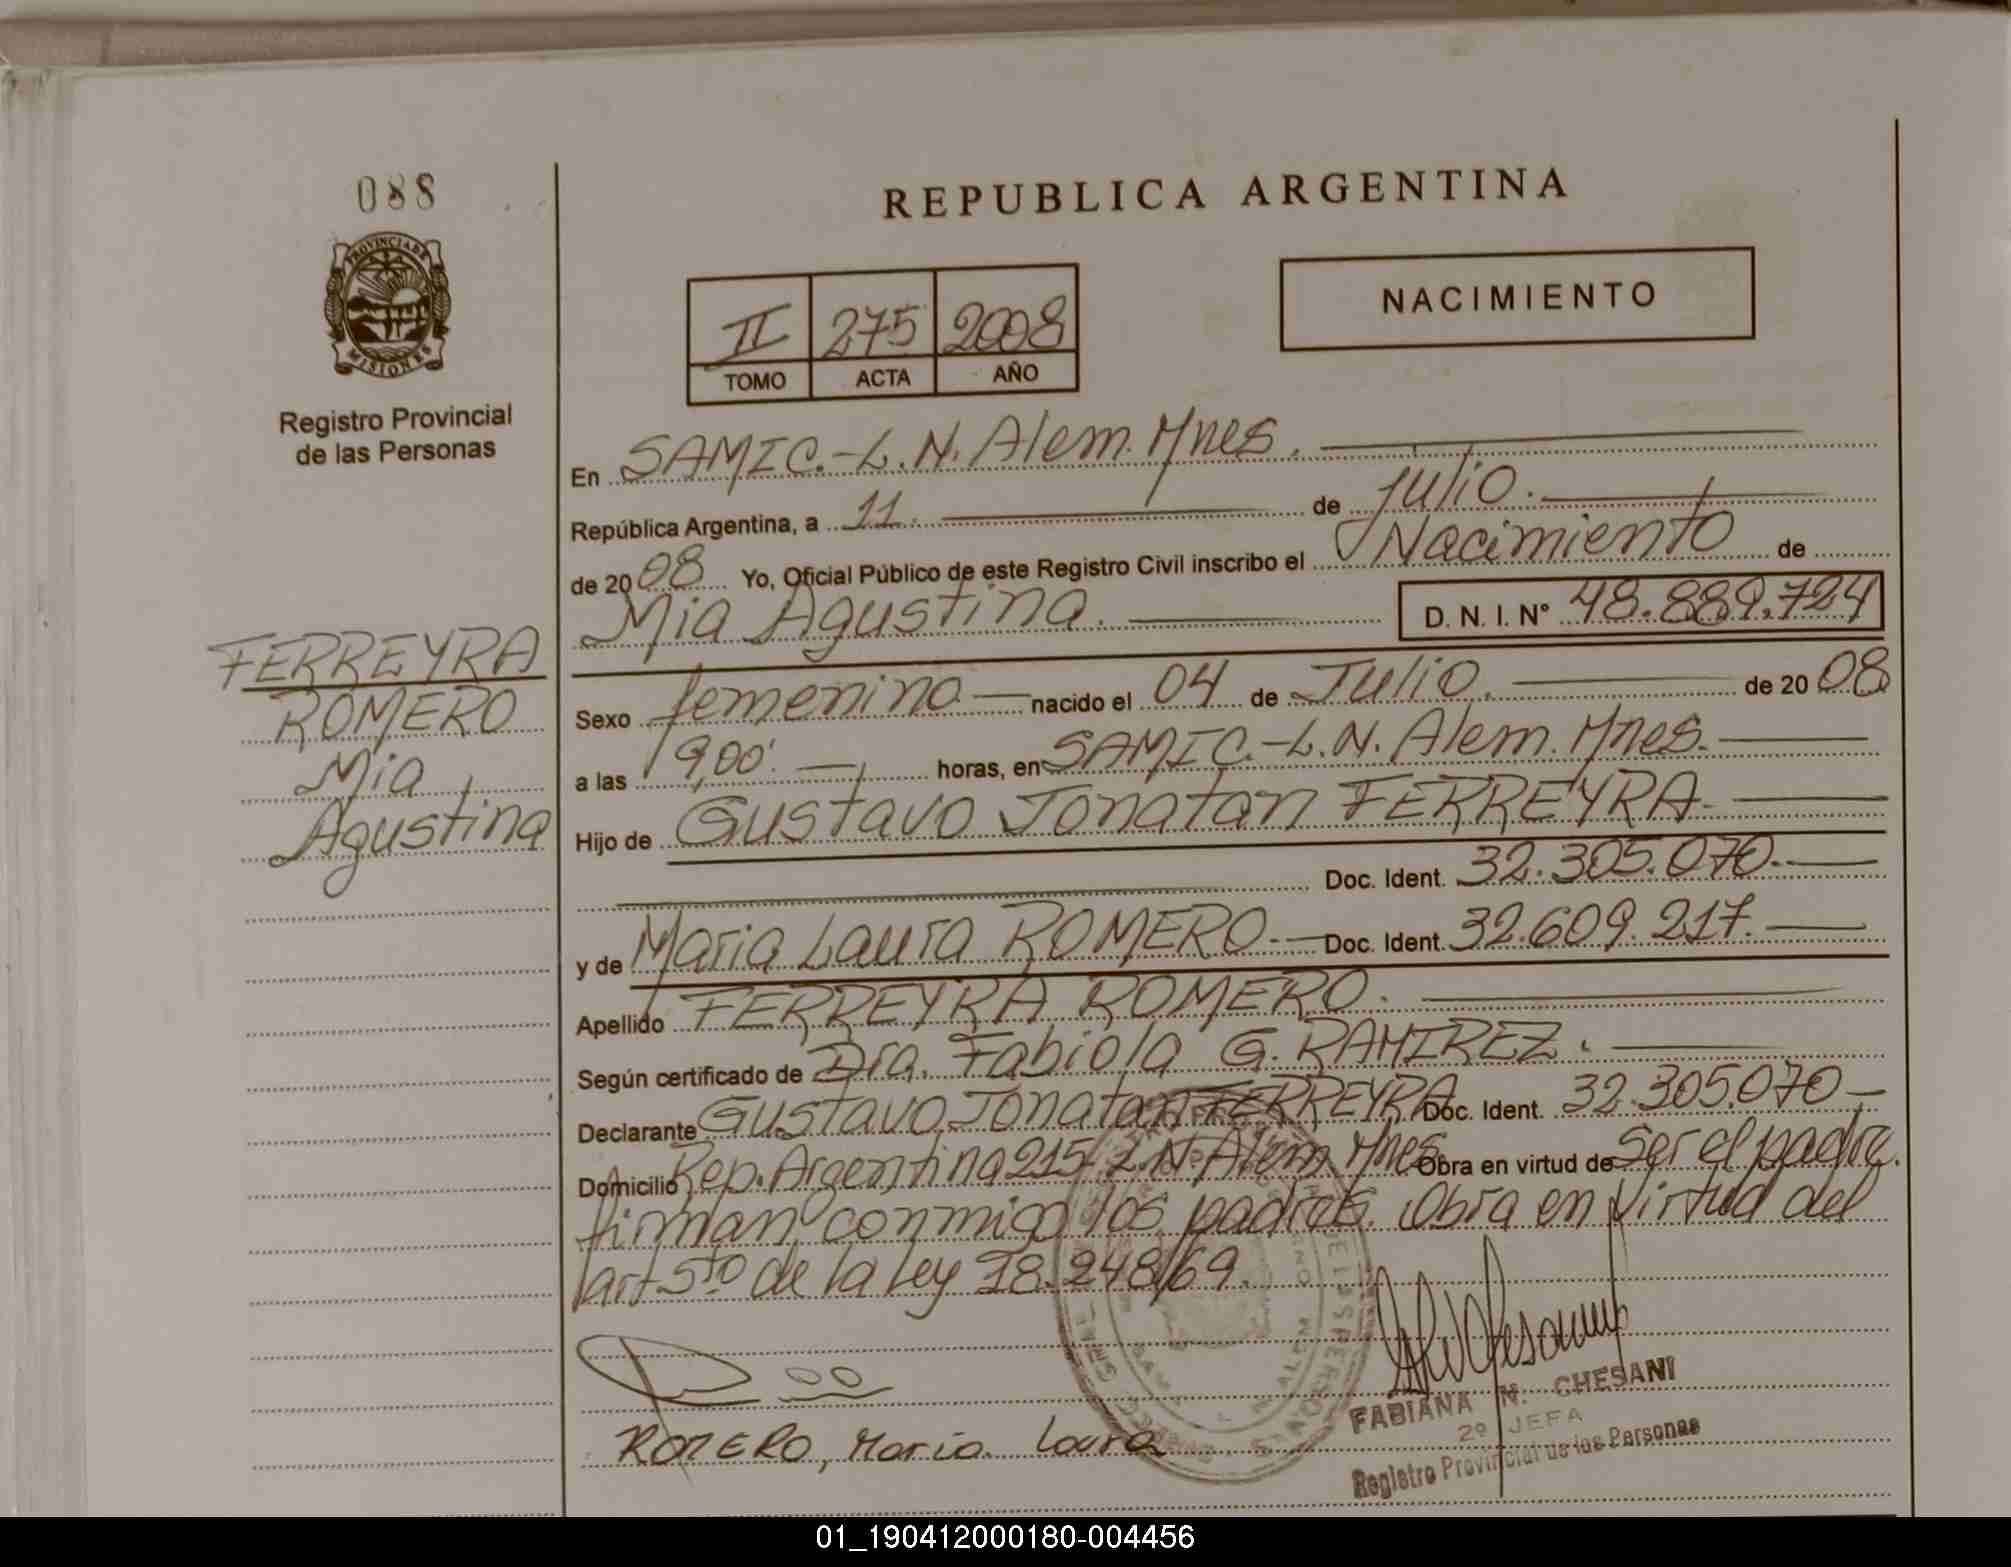 088
PROVINCIA DE
MISIONES
Registro Provincial
de las Personas
REPUBLICA ARGENTINA
NACIMIENTO
II 275 2008
TOMO ACTA AÑO
En SAMIC.-L.N. Alem. Mnes.
República Argentina, a 11. de julio.
de 2008 Yo, Oficial Público de este Registro Civil inscribo el Nacimiento de
Mia Agustina. D. N. I. N° 48.889.724
FERREYRA
ROMERO
Mia
Agustina
Sexo femenino nacido el 04 de Julio. de 2008
a las 19,00'. horas, en SAMIC.-L.N. Alem. Mnes.
Hijo de Gustavo Jonatan FERREYRA.
Doc. Ident. 32.305.070.
y de Maria Laura ROMERO. Doc. Ident. 32.609.217.
Apellido FERREYRA ROMERO.
Según certificado de Dra. Fabiola G. RAMIREZ.
Declarante Gustavo Jonatan FERREYRA Doc. Ident. 32.305.070
Domicilio Rep. Argentina 215-L.N. Alem Mnes. Obra en virtud de ser el padre.
firman conmigo los padres. Obra en virtud del
art 5to de la Ley 18.248/69.
ROMERO, Maria Laura
FABIANA N. CHESANI
2º JEFA
Registro Provincial de las Personas
01_190412000180-004456